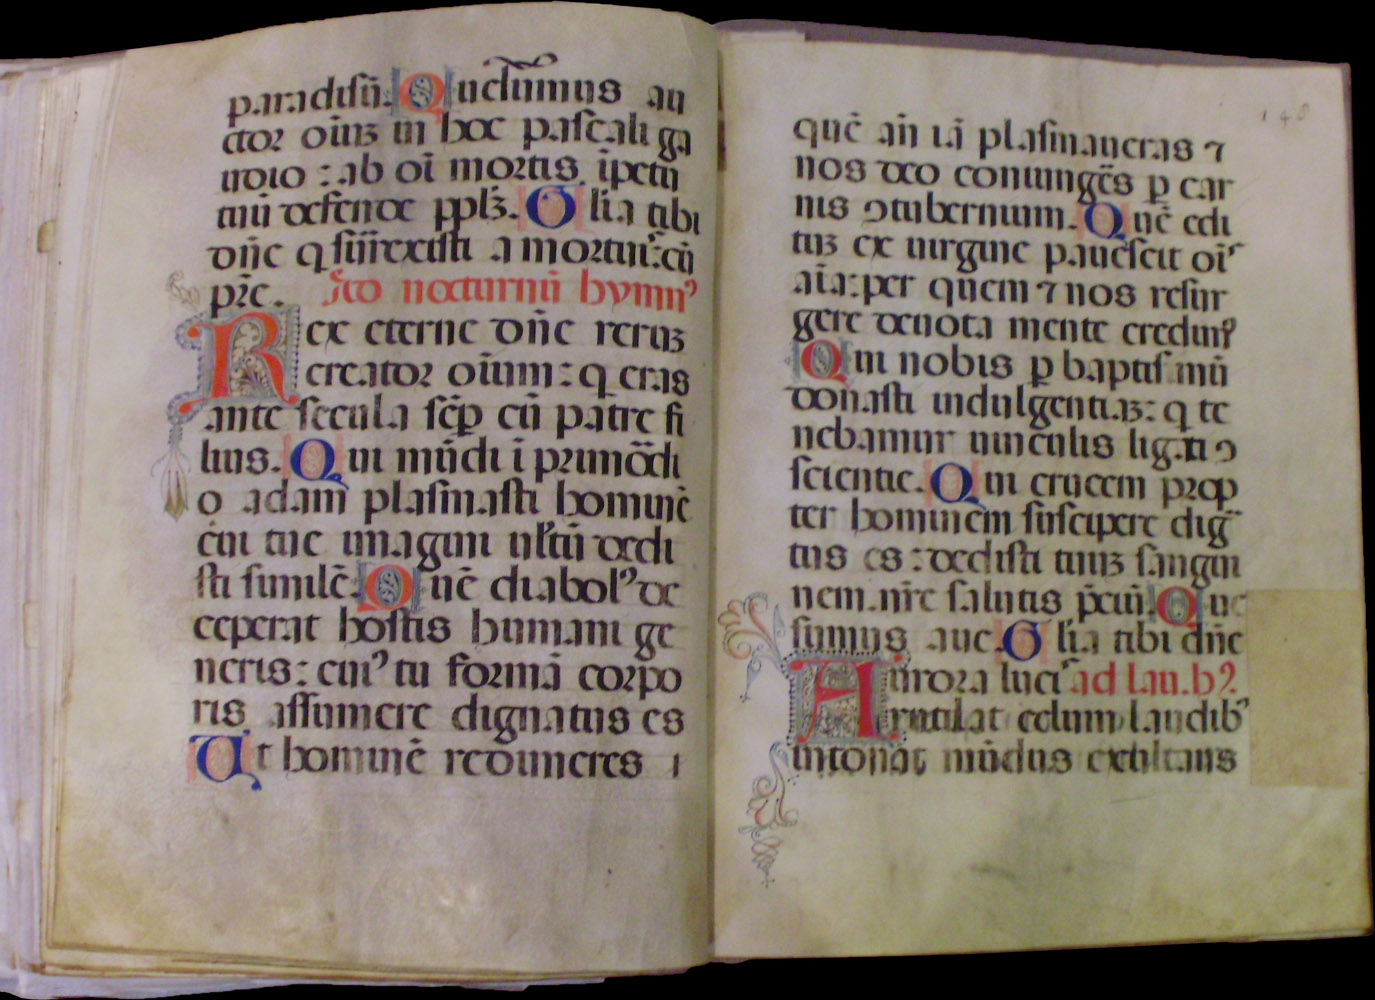 paradisū. Quesumus au
ctor oīuꝫ in hoc pascali ga
udio : ab oī mortis īpetu
tuū defende pplꝫ. Glīa tibi
dn̄e q surrexisti a mortuis. cū
pr̄e. Scd̄o nocturnū hymnꝰ
Rex eterne dn̄e reruꝫ
creator oīum : q eras
ante secula sēꝑ cū patre fi
lius. Qui mūdi ī primordi
o adam plasmasti hominē
cui tue imagini vultū dedi
sti similē. Quē diabolꝰ de
ceperat hostis humani ge
neris : cuiꝰ tu formā corpo
ris assumere dignatus es
Ut hominē redimeres
148
quē an̄ iā plasmaueras ⁊
nos deo coniungēs ꝑ car
nis ꝯtubernium. Quē edi
tuꝫ ex uirgine pauescit oīs
aīa : per quem ⁊ nos resur
gere deuota mente credimꝰ
Qui nobis ꝑ baptismū
donasti indulgentiaꝫ : q te
nebamur uinculis ligati ꝯ
scientie. Qui crucem prop
ter hominem suscipere dig
tus es : dedisti tuuꝫ sangui
nem nr̄e salutis p̄ciū. Que
sumus auc. Glīa tibi dn̄e
Aurora lucis ad lau. hꝰ
rutilat celum laudibꝰ
intonat mūdus exultans